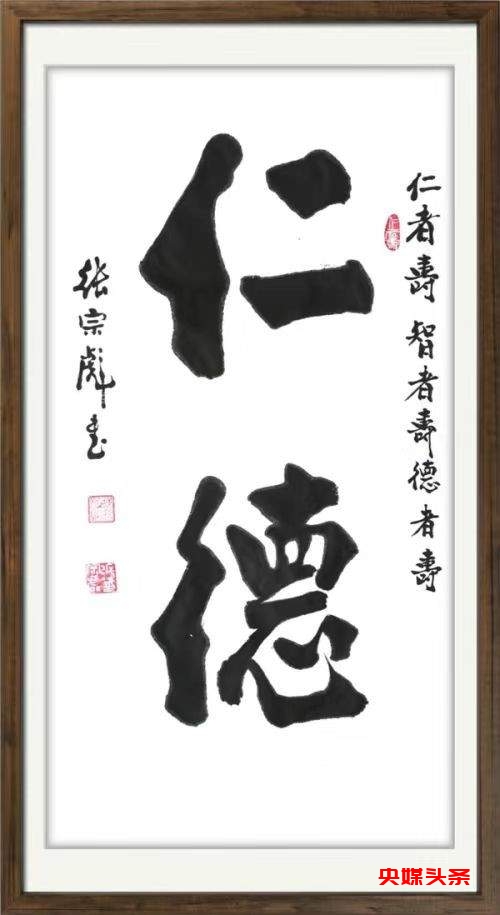 仁者壽智者壽德者壽
仁德
张宗彪书
央媒头条